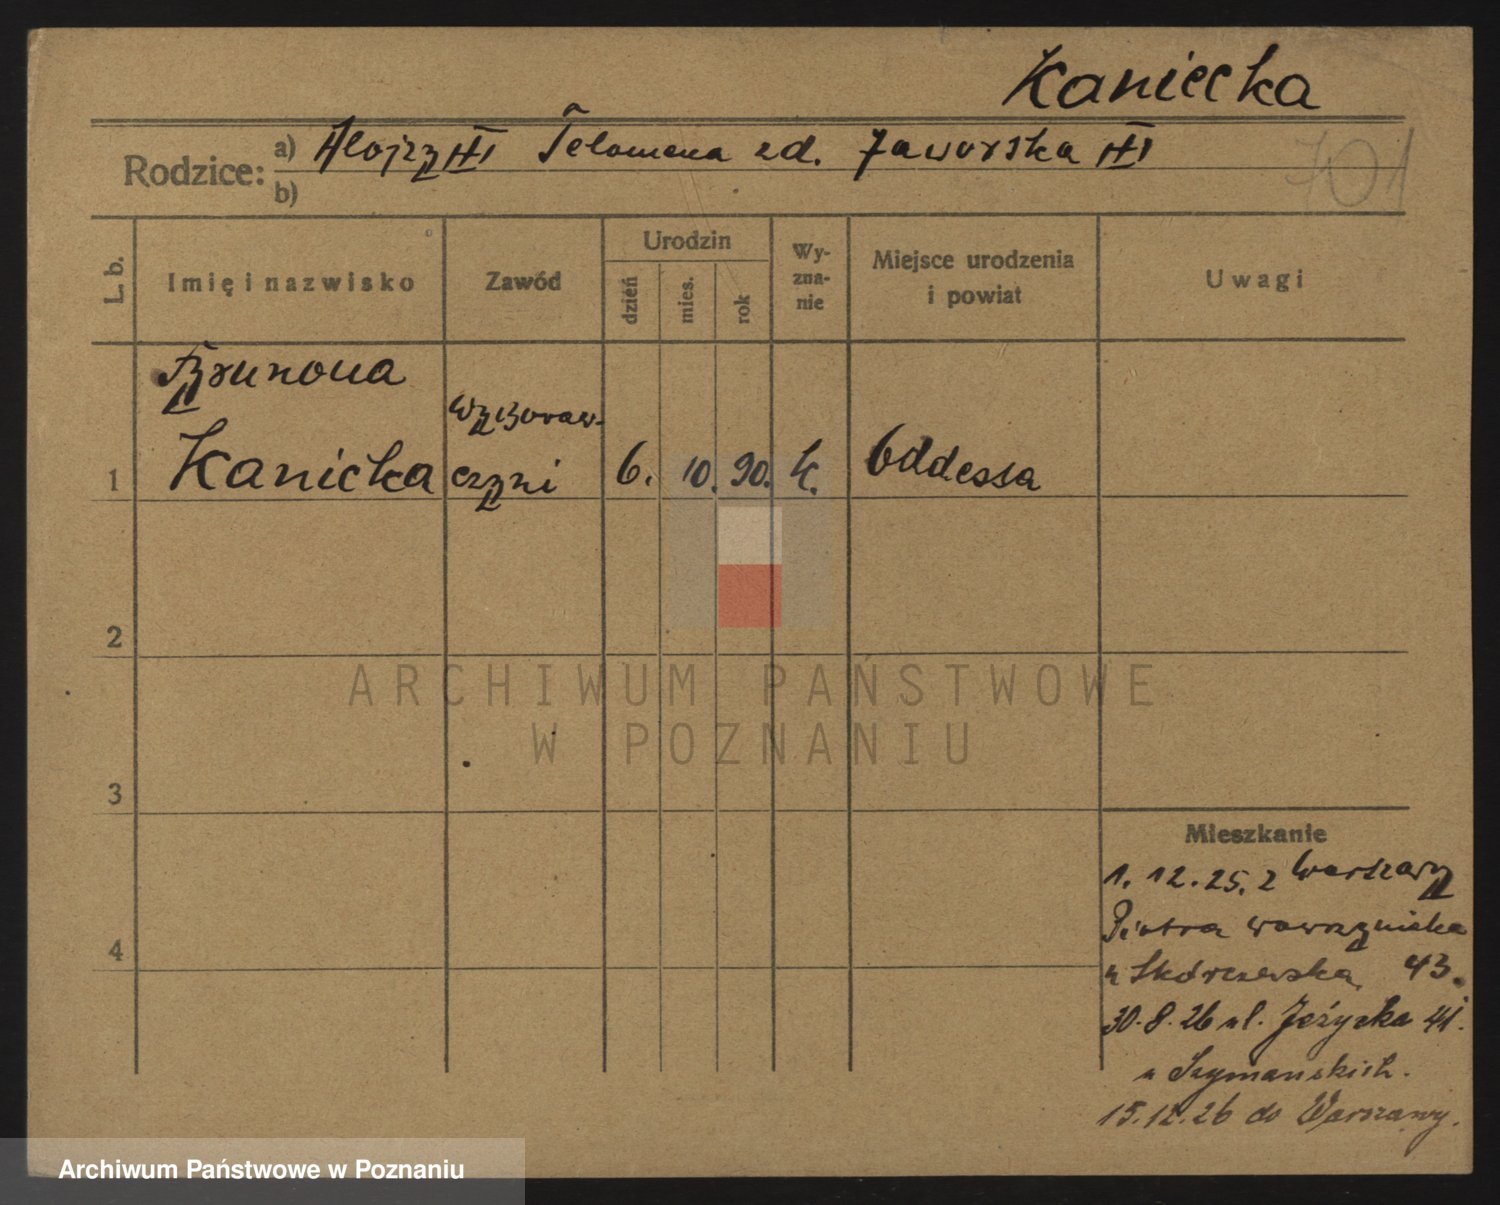 Kaniecka
Rodzice: a) Alojzy Telomena zd. Jaworska
b)
701
L. b. Imię i nazwisko Zawód Urodzin dzień mies. rok Wy-zna-nie Miejsce urodzenia i powiat Uwagi
Brunona
wychowaw-
1 Kanicka czyni 6. 10. 90. k. Oddessa
2
ARCHIWUM PAŃSTWOWE
W POZNANIU
3
Mieszkanie
1. 12. 25. z Warszawy
Piotra Wawrzyniaka
u Skórzewska 43.
4
30. 8. 26 ul. Jeżycka 41.
u Szymańskich.
15. 12. 26 do Warszawy.
Archiwum Państwowe w Poznaniu